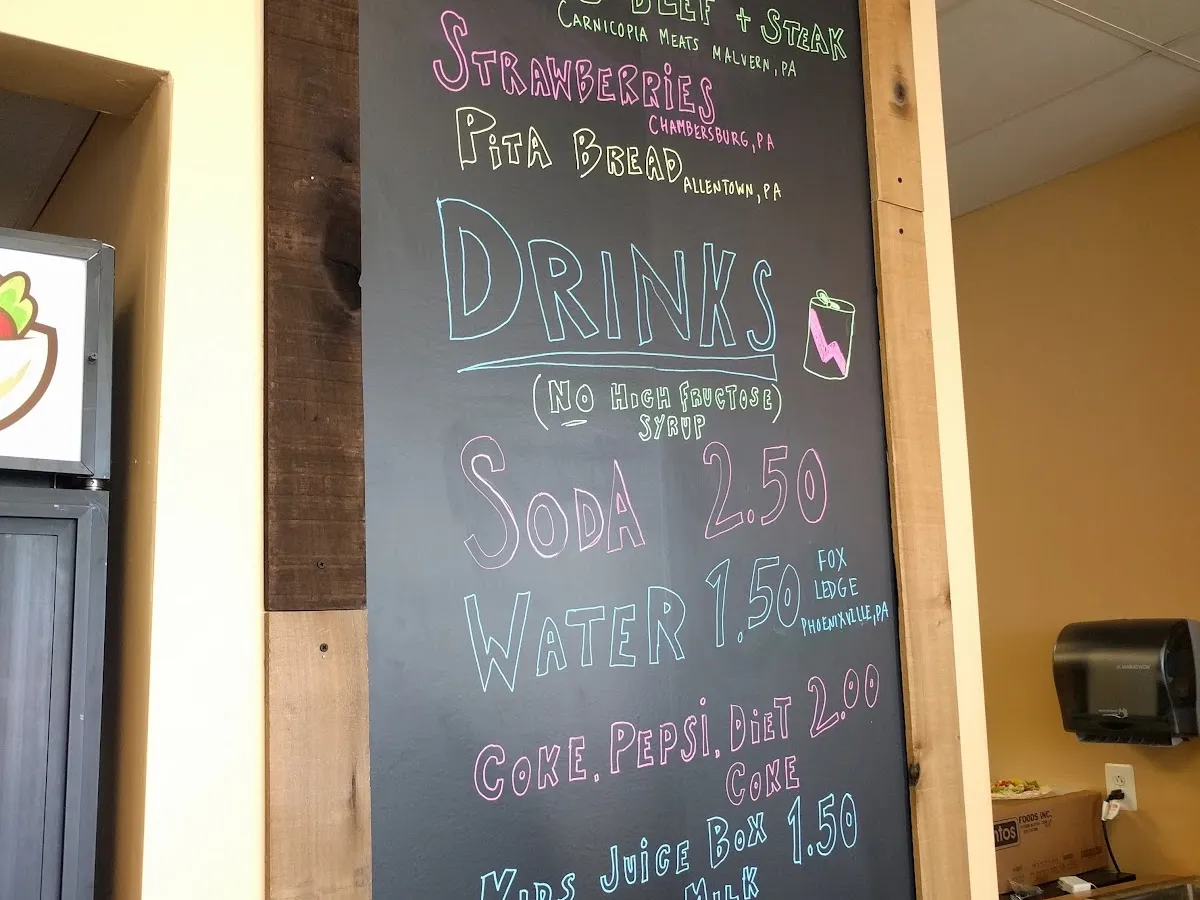 BEEF + STEAK
CARNICOPIA MEATS MALVERN, PA
STRAWBERRIES
CHAMBERSBURG, PA
PITA BREAD ALLENTOWN, PA
DRINKS
(NO HIGH FRUCTOSE)
SYRUP
SODA 2.50
WATER 1.50 FOX
LEDGE
PHOENIXVILLE, PA
COKE. PEPSI. DIET 2.00
COKE
KIDS JUICE BOX 1.50
MILK
ntos FOODS INC.